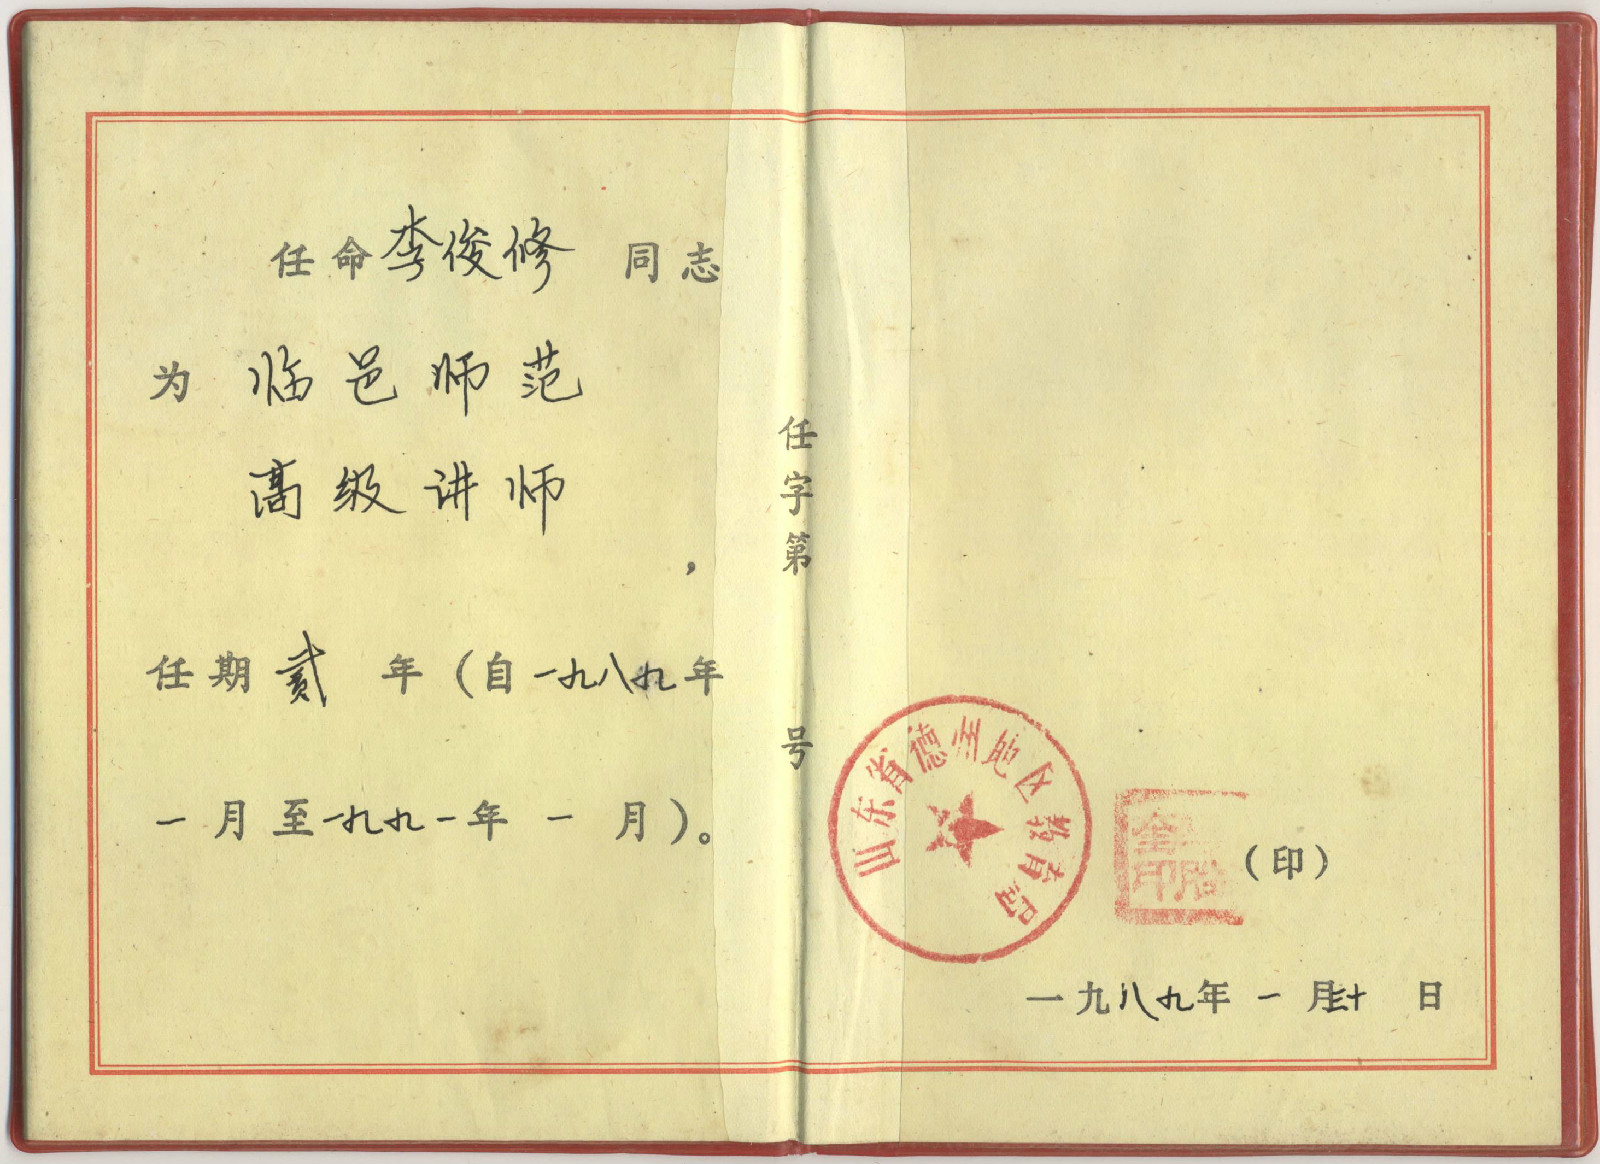 任命李俊修 同志
为 临邑师范
高级讲师
，
任期贰 年（自一九八九年
一月至一九九一年 一 月）。
任字第 号
山东省德州地区教育局
（印）
一九八九年 一 月三十 日